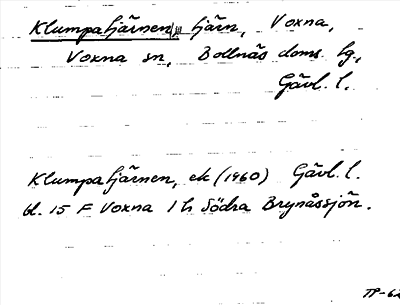 Klumpatjärnen, tjärn, Voxna,
Voxna sn, Bollnäs doms. hg,
Gävl. l.
Klumpatjärnen, ek (1960) Gävl. l.
bl. 15 F Voxna 1 h Södra Brynåssjön.